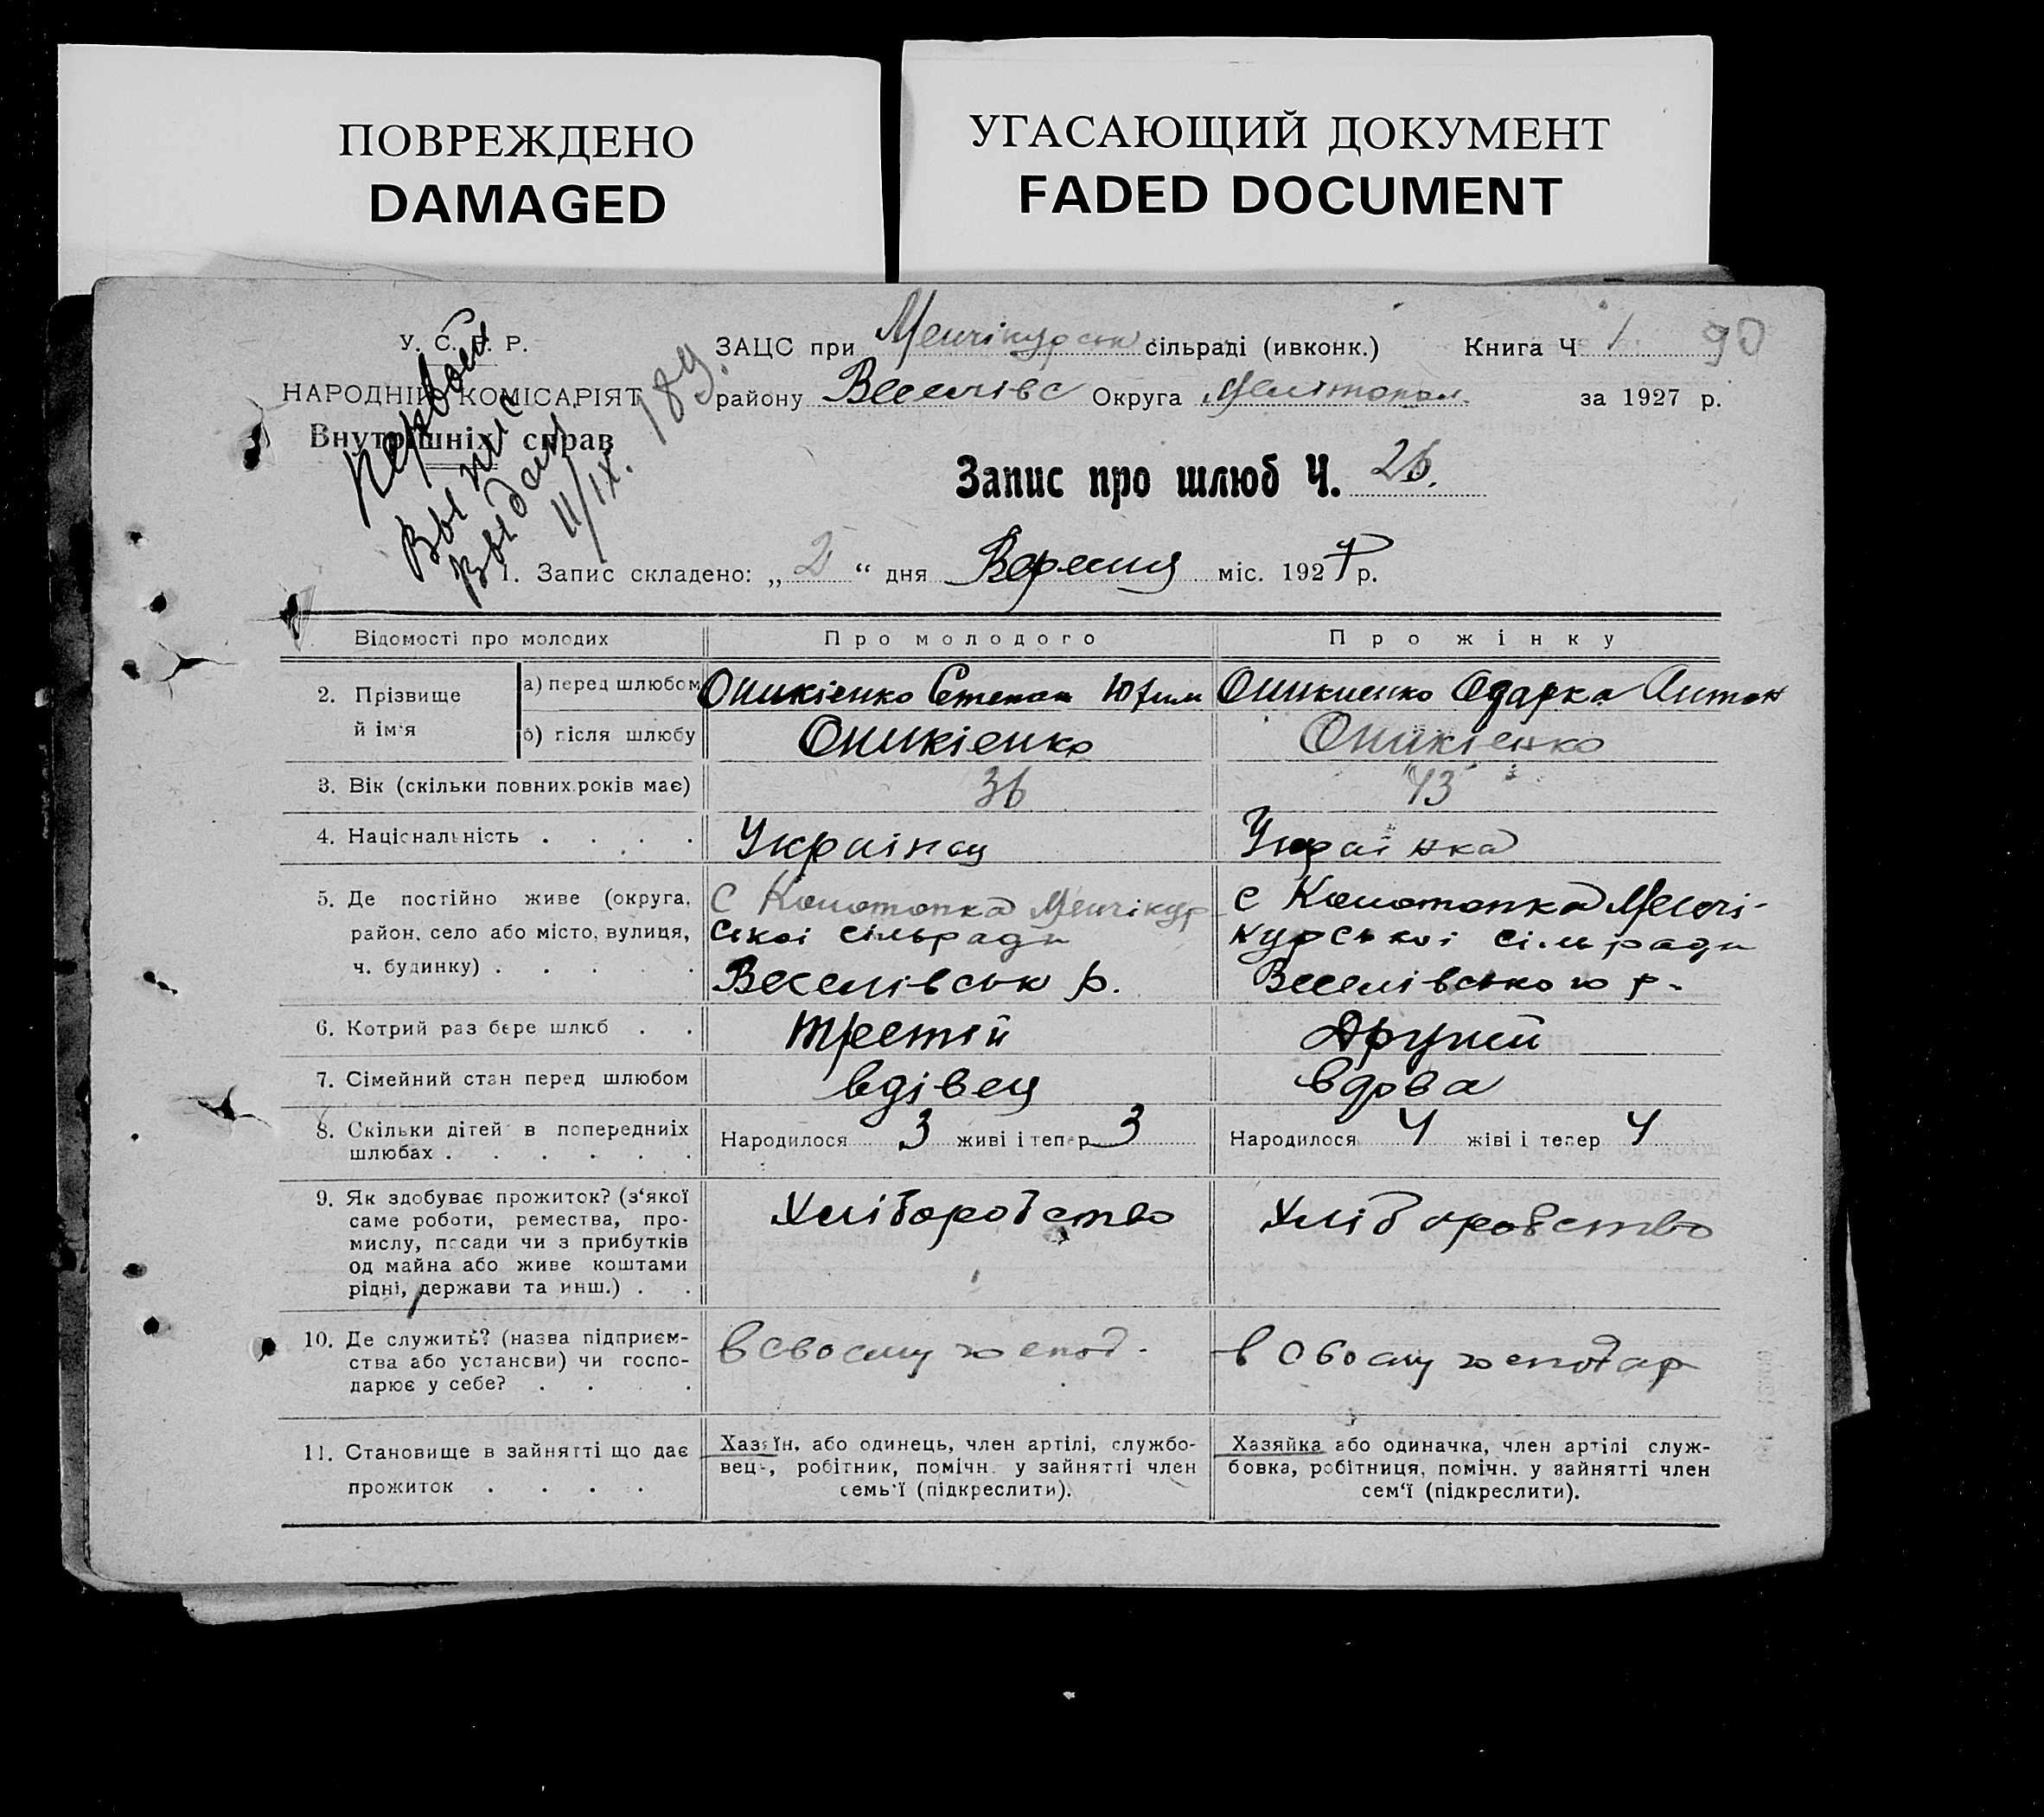 ПОВРЕЖДЕНО
DAMAGED
УГАСАЮЩИЙ ДОКУМЕНТ
FADED DOCUMENT
У. С. Р. Р.
НАРОДНІЙ КОМІСАРІЯТ
Внутрішніх справ
Выпис
Выдан
11/IX.
189.
ЗАЦС при Менчікурськ сільраді (ивконк.) Книга Ч 1 90
району Веселівс Округа Мелітопол. за 1927 р.
Запис про шлюб Ч. 26.
1. Запис складено: „ 2 “ дня Вересня міс. 1927 р.
Відомості про молодих Про молодого Про жінку
2. Прізвище й ім'я
а) перед шлюбом Оникієнко Степан Юхим Оникиенко Одарка Антон
б) після шлюбу Оникієнко Оникієнко
3. Вік (скільки повних років має) 36 43
4. Національність . . . . Украінец Украінка
5. Де постійно живе (округа,
район, село або місто, вулиця,
ч. будинку) . . . . .
С Копотопка Менчікур
ськоі сільради
Веселівськ р.
с Копотопка Менчі-
курськоі сільради
Веселівського р.
6. Котрий раз бере шлюб . . третій Другий
7. Сімейний стан перед шлюбом вдівец вдова
8. Скільки дітей в попередниіх
шлюбах . . . . . .
Народилося 3 живі і тепер 3 Народилося 4 жіві і тепер 4
9. Як здобуває прожиток? (з‘якої
саме роботи, ремества, про-
мислу, посади чи з прибутків
од майна або живе коштами
рідні, держави та инш.) . .
Хліборобство Хліборобство
10. Де служить? (назва підприєм-
ства або установи) чи госпо-
дарює у себе? . . . .
в своєму господ. в своєму господар
11. Становище в зайнятті що дає
прожиток . . . .
Хазяїн, або одинець, член артілі, службо-
вець, робітник, помічн. у зайнятті член
семь‘ї (підкреслити).
Хазяйка або одиначка, член артілі служ-
бовка, робітниця, помічн. у зайнятті член
сем‘ї (підкреслити).